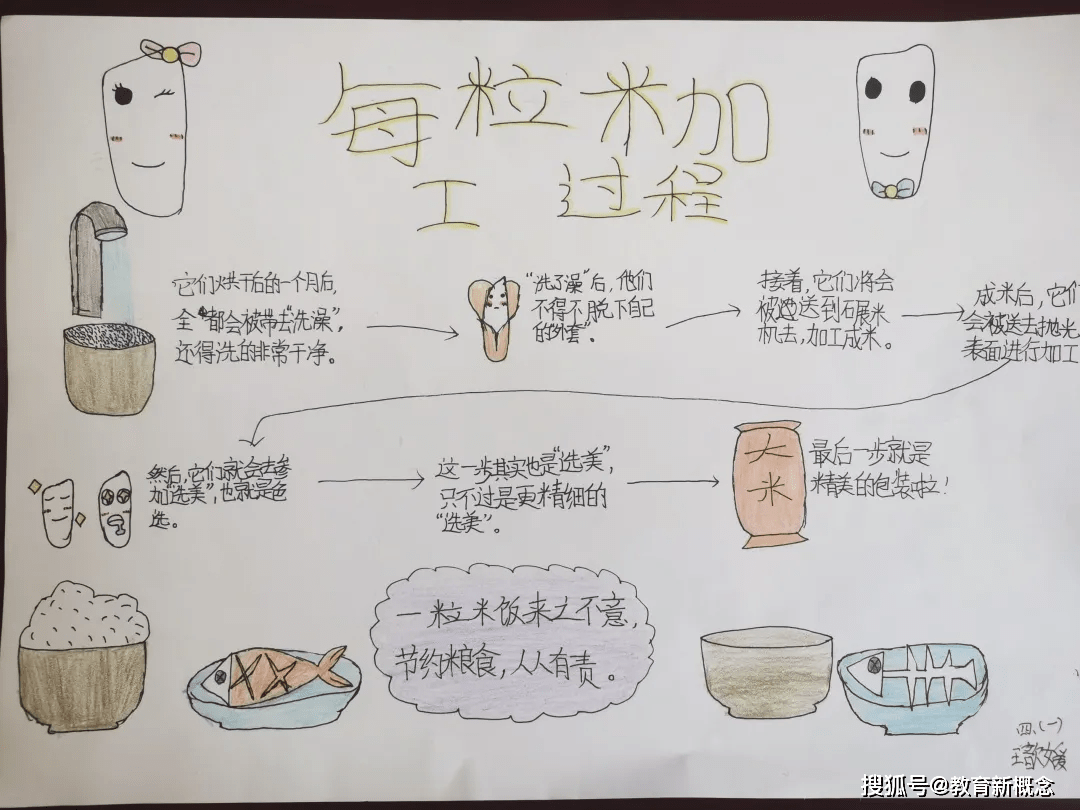 每粒米加
工 过程
它们烘干后的一个月后,
全都会被带去“洗澡”,
还得洗的非常干净。
“洗了澡”后,他们
不得不脱下自己
的“外套”。
接着,它们将会
被送到石展米
机去,加工成米。
成米后,它们
会被送去抛光
表面进行加工
然后,它们就会去参
加“选美”,也就是色
选。
这一步其实也是“选美”,
只不过是更精细的
“选美”。
大
米
最后一步就是
精美的包装啦!
一粒米饭来之不意,
节约粮食,人人有责。
四.(一)
王歆媛
搜狐号@教育新概念